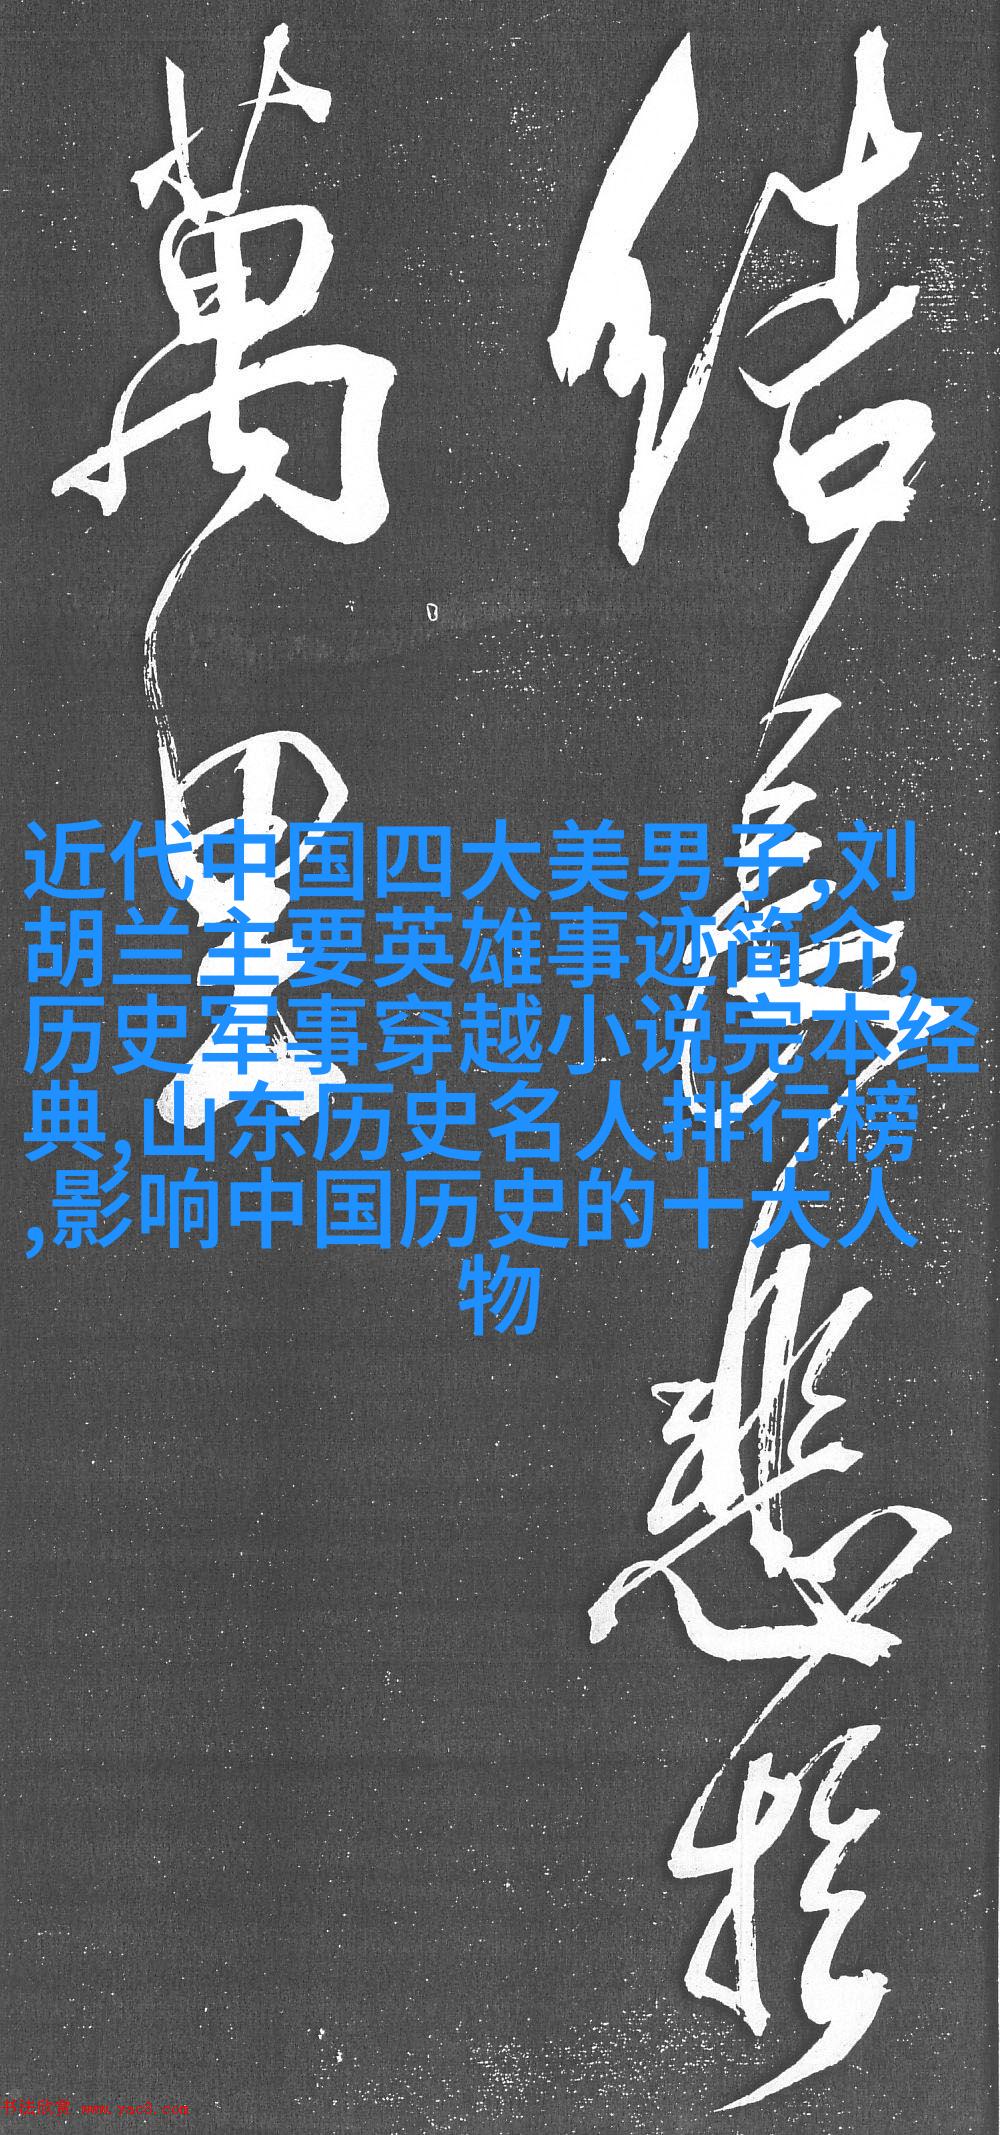 近代中国四大美男子,刘
胡兰主要英雄事迹简介,
历史军事穿越小说完本经
典,山东历史名人排行榜
,影响中国历史的十大人
物
结长悲於
萬里
书法欣赏 www.yac8.com